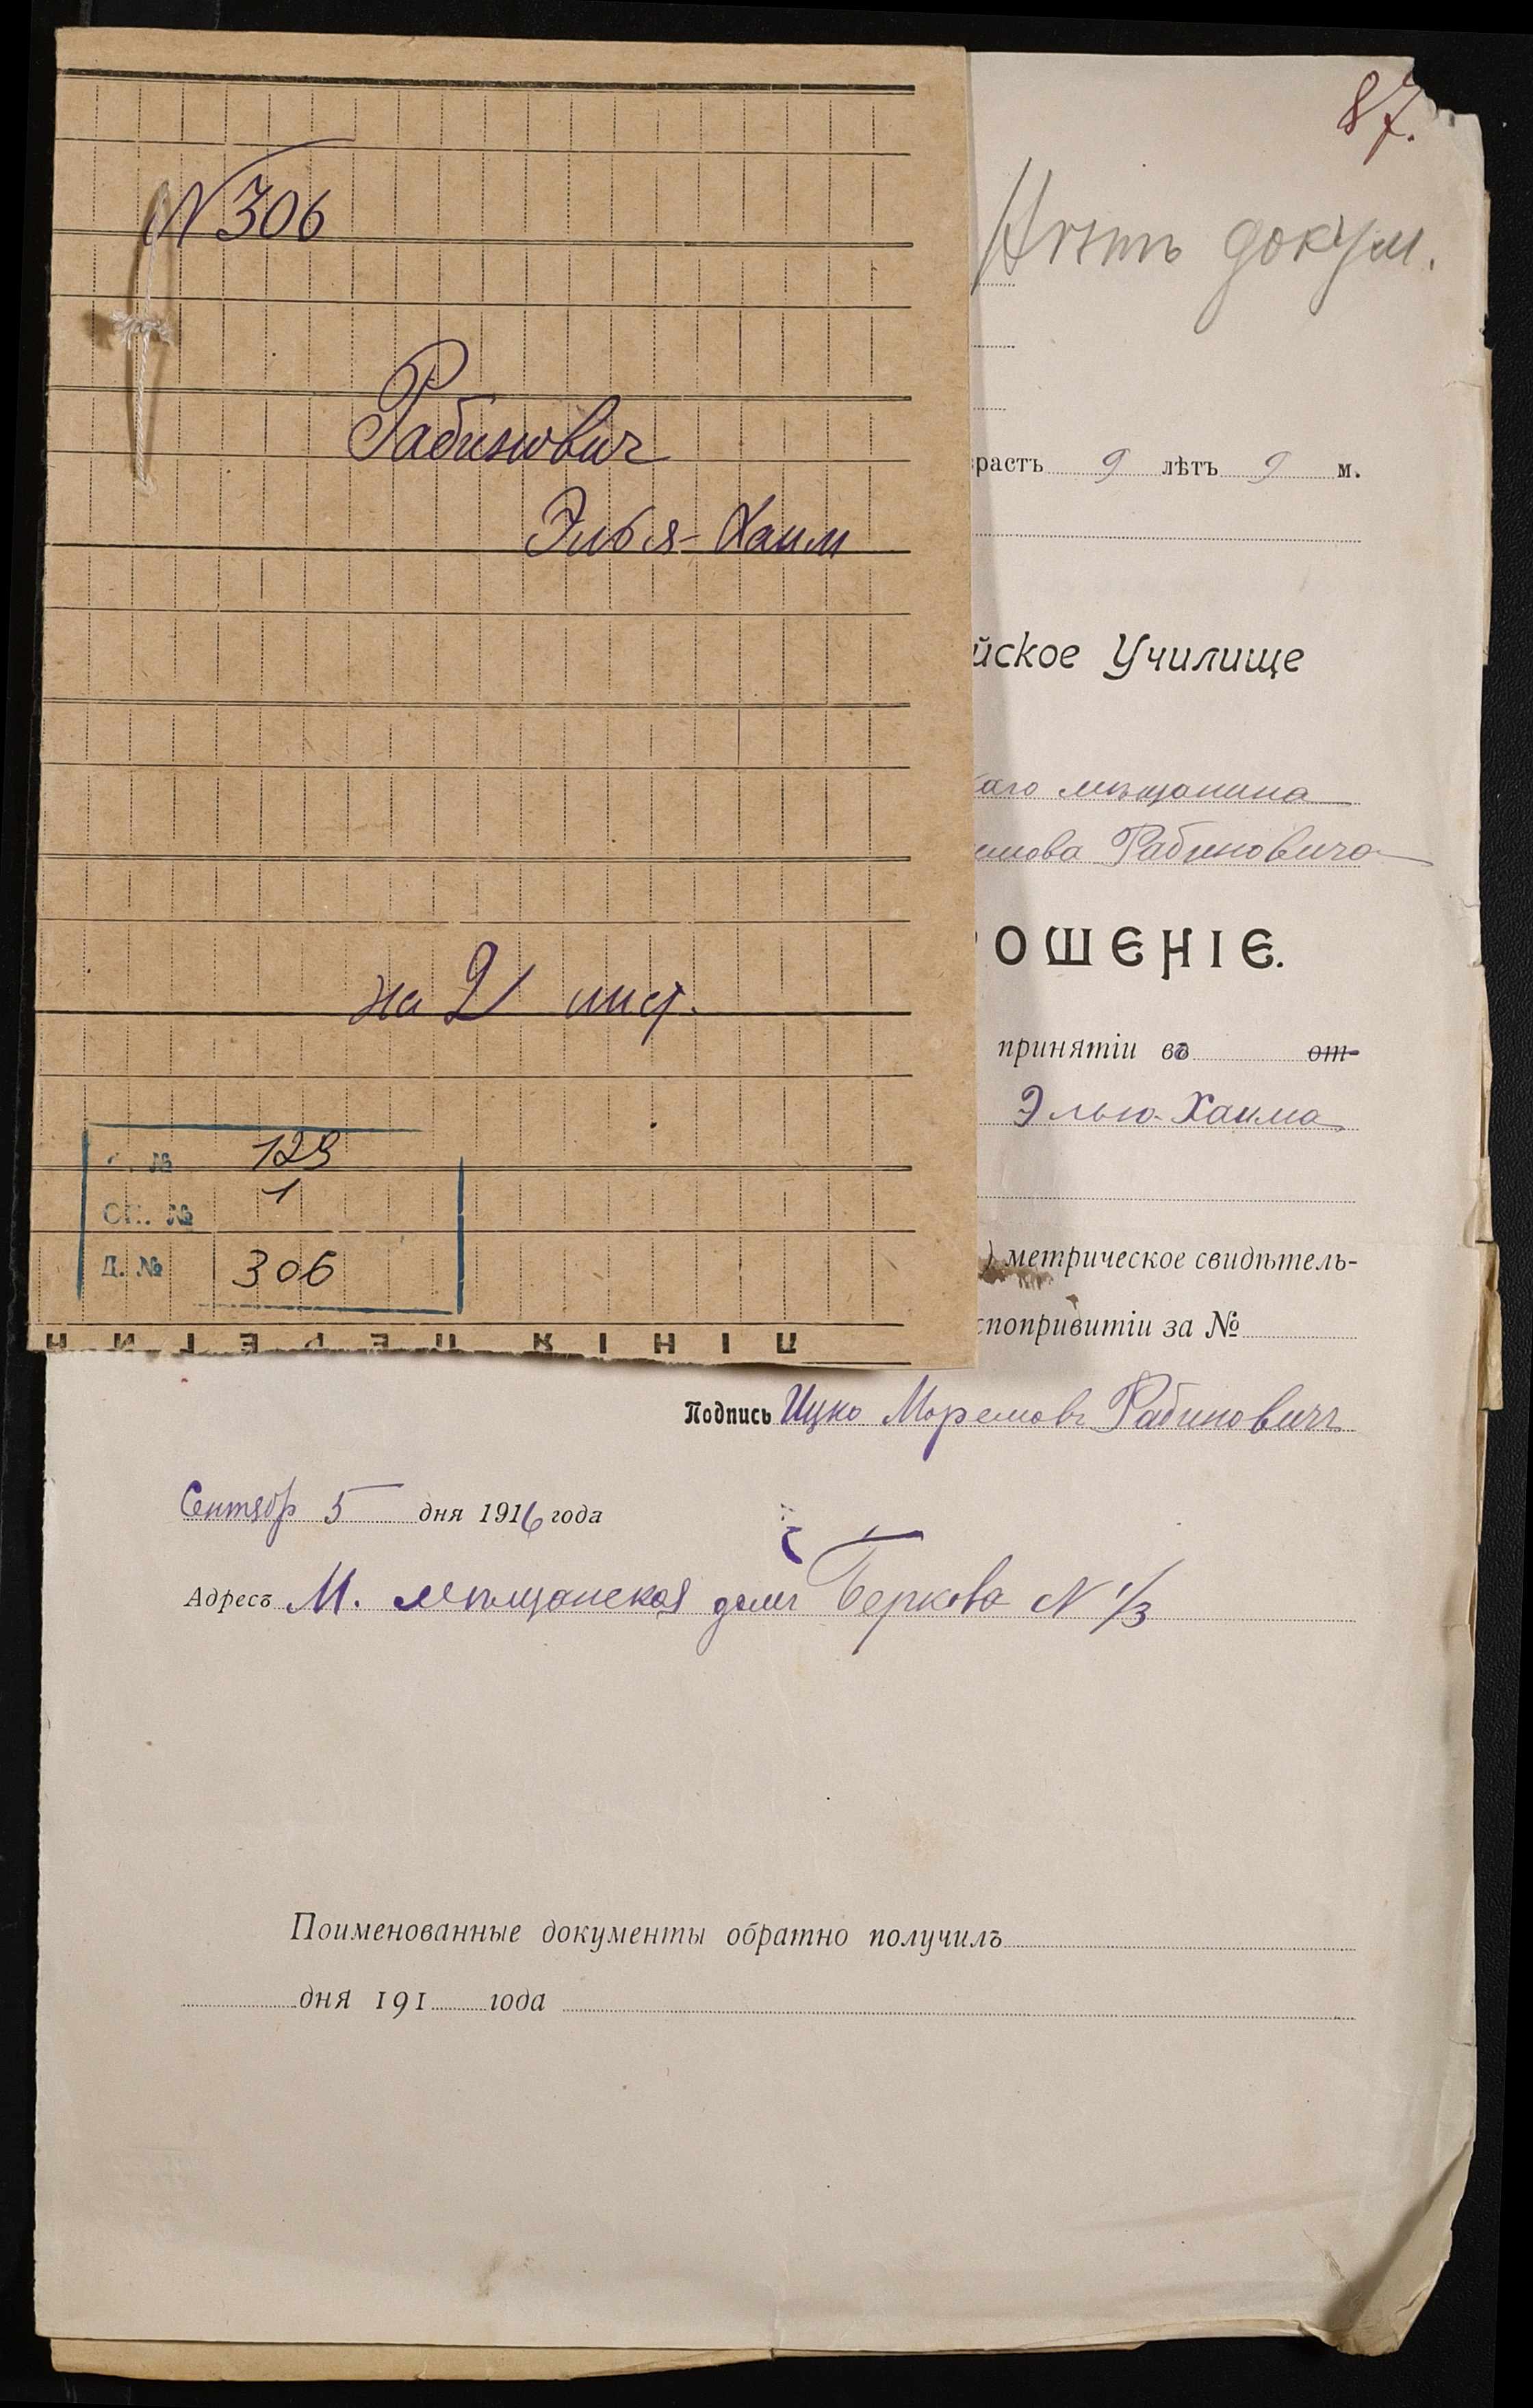 N 306
Рабинович
Элья-Хаим
на 2 лист.
№ 129
ОП. № 1
Д. № 306
87.
Нѣтъ докум.
растъ 9 лѣтъ 9 м.
йское Училище
каго мѣщанина
Рабиновича
ОШЕНІЕ.
принятіи въ от-
Элью-Хаима
) метрическое свидѣтель-
спопривитіи за №
Подпись Ицко Рабиновичъ
Сентябр 5 дня 1916 года
Адресъ М. мѣщанская домъ Беркова N 1/3
Поименованные документы обратно получилъ
дня 191 года